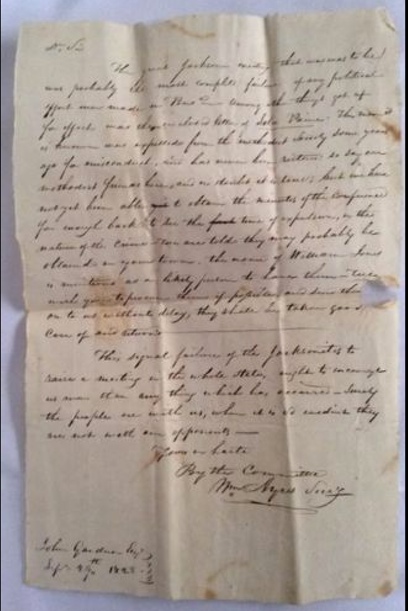 Dr Sir
The great Jackson meeting that was was to be
was probably the most complete failure of any political
effort ever made in Among the things got up
for effect was the enclosed letter of John The man it
is known was expelled from the methodist Society some years
ago for misconduct, and has never been restored so say our
methodist friends here, and no doubt it is true; but we have
not yet been able to obtain the minutes of the Conference
far enough back to the time of expulsion, or the
nature of the Crime we are told they may probably be
obtained in your town. the name of William Jones
is mentioned as a likely person to have them
wish you to procure them if possible, and send them
on to us without delay, they shall be taken good
care of and returned
This signal failure of the Jacksonites to
raise a meeting in the whole state, ought to encourage
us more than any thing which has occurred Surely
the people are with us, when it is so evident they
are not with our opponents
Yours in haste
By the Committee
Wm Ayres Secy
John Gardner Esq
Sept 1828